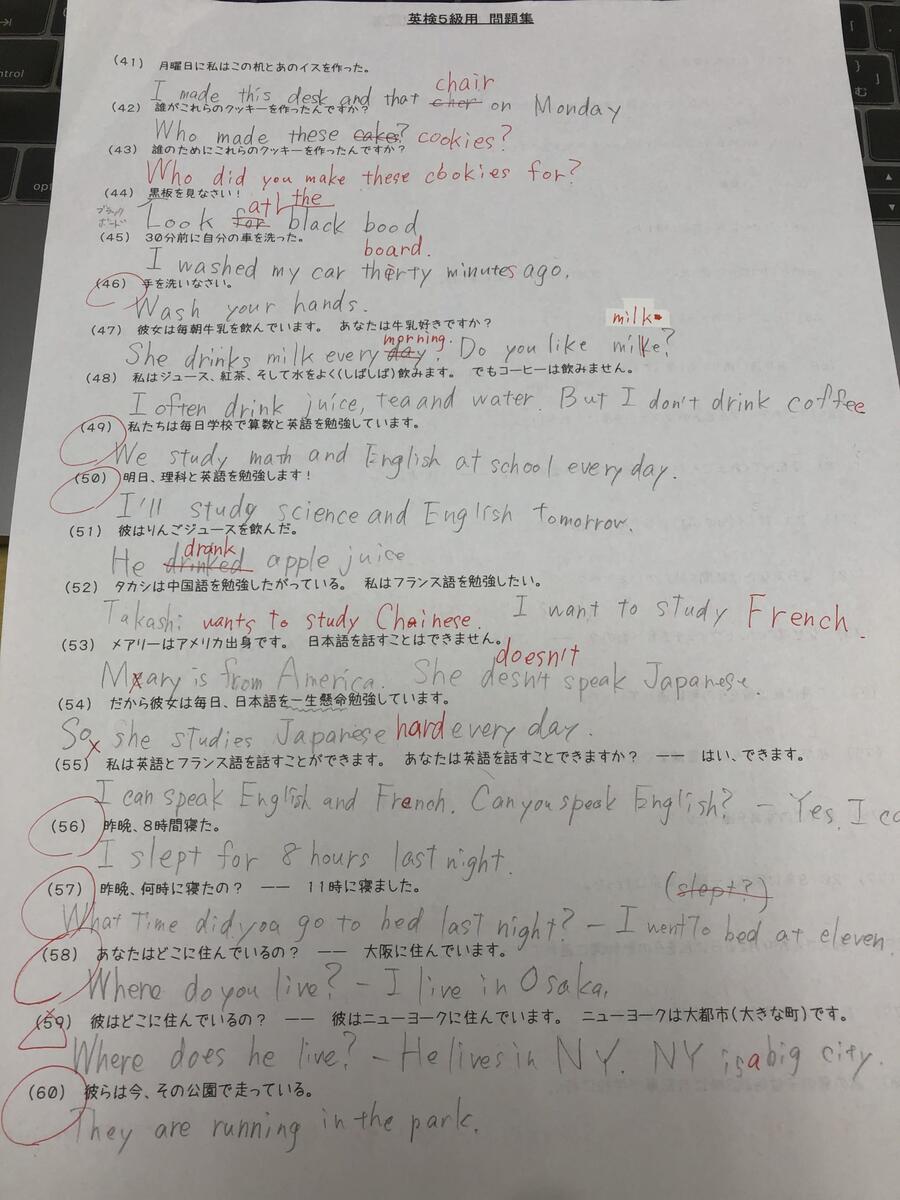 英検5級用 問題集
(41) 月曜日に私はこの机とあのイスを作った。
chair
I made this desk and that cher on Monday
(42) 誰がこれらのクッキーを作ったんですか？
Who made these cakes? cookies?
(43) 誰のためにこれらのクッキーを作ったんですか？
Who did you make these cookies for?
(44) 黒板を見なさい！
at the
ブラックボード
Look for black bood
(45) 30分前に自分の車を洗った。
board.
I washed my car thirty minutes ago.
(46) 手を洗いなさい。
Wash your hands.
(47) 彼女は毎朝牛乳を飲んでいます。 あなたは牛乳好きですか？
milk
morning.
She drinks milk every day. Do you like milke?
(48) 私はジュース、紅茶、そして水をよく(しばしば)飲みます。 でもコーヒーは飲みません。
I often drink juice, tea and water. But I don't drink coffee
(49) 私たちは毎日学校で算数と英語を勉強しています。
We study math and English at school every day.
(50) 明日、理科と英語を勉強します！
I'll study science and English tomorrow.
(51) 彼はりんごジュースを飲んだ。
drank
He drinked apple juice
(52) タカシは中国語を勉強したがっている。 私はフランス語を勉強したい。
Takashi wants to study Chainese. I want to study French.
(53) メアリーはアメリカ出身です。 日本語を話すことはできません。
doesn't
Mary is from America. She desn't speak Japanese.
(54) だから彼女は毎日、日本語を一生懸命勉強しています。
So she studies Japanese hard every day.
(55) 私は英語とフランス語を話すことができます。 あなたは英語を話すことできますか？ ―― はい、できます。
I can speak English and French. Can you speak English? - Yes, I
(56) 昨晩、8時間寝た。
I slept for 8 hours last night.
(57) 昨晩、何時に寝たの？ ―― 11時に寝ました。
(slept?)
What time did you go to bed last night? - I went to bed at eleven
(58) あなたはどこに住んでいるの？ ―― 大阪に住んでいます。
Where do you live? - I live in Osaka.
(59) 彼はどこに住んでいるの？ ―― 彼はニューヨークに住んでいます。 ニューヨークは大都市(大きな町)です。
Where does he live? - He lives in NY. NY is a big city.
(60) 彼らは今、その公園で走っている。
They are running in the park.